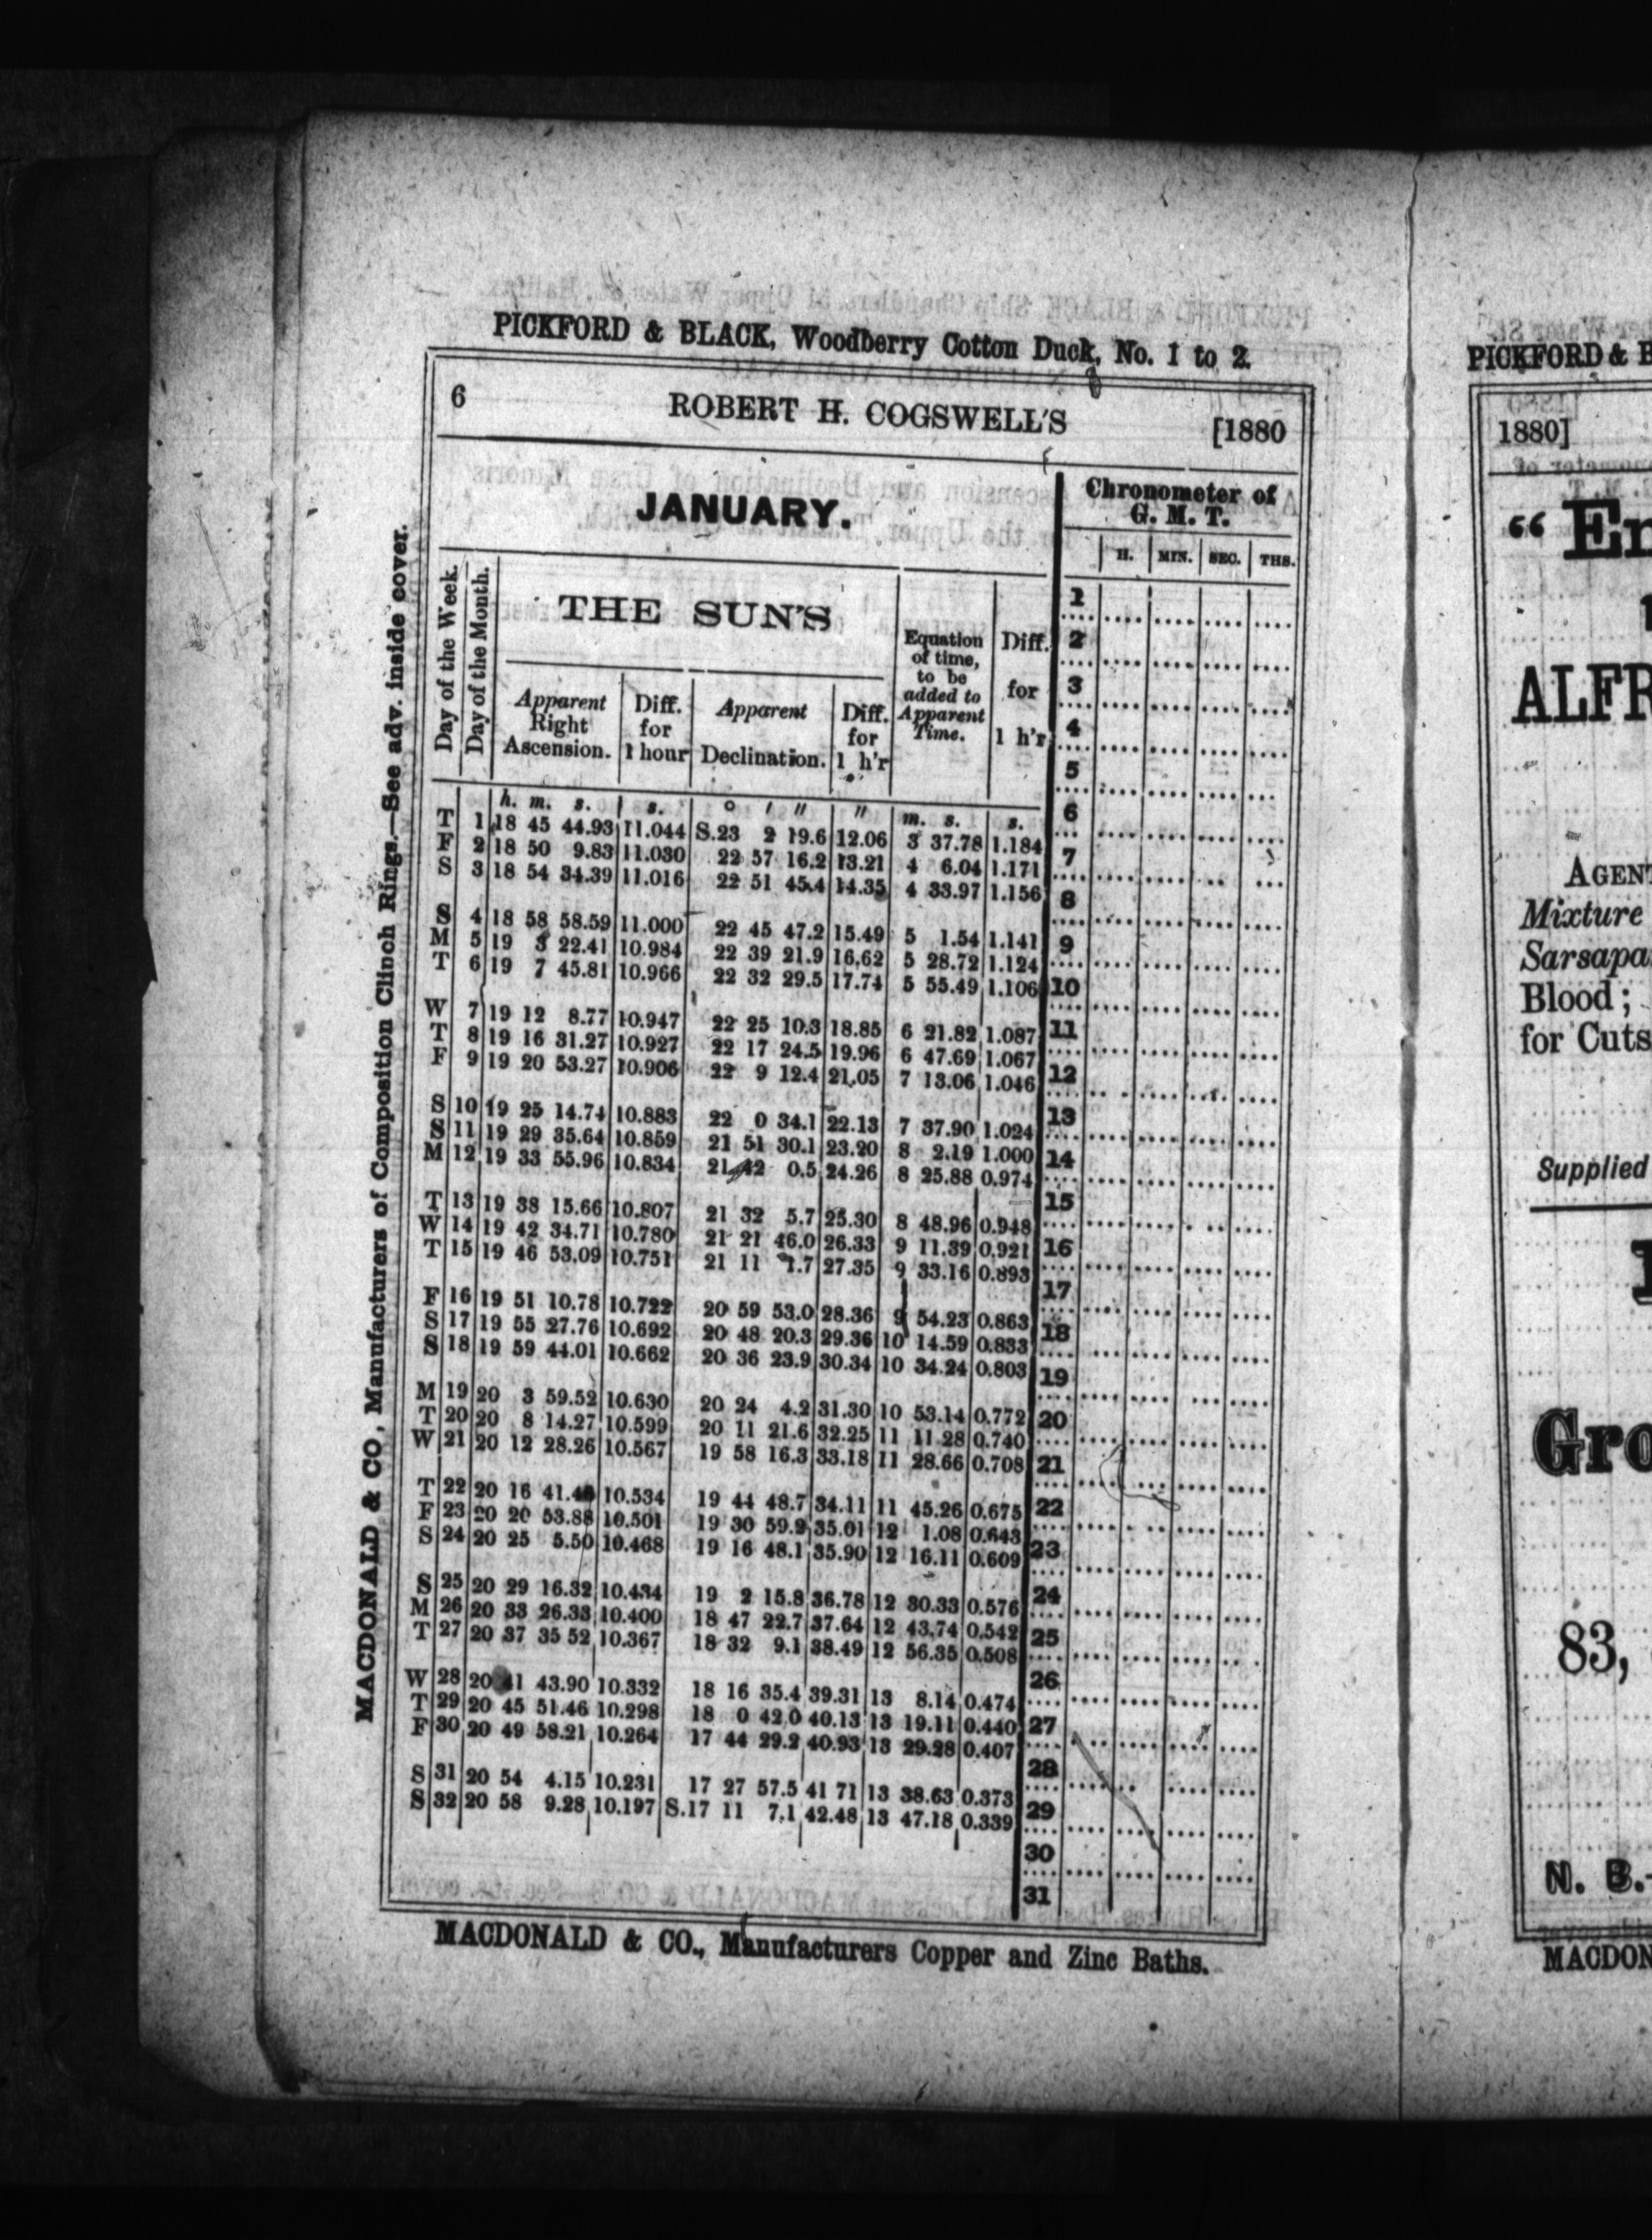 PICKFORD & BLACK, Woodberry Cotton Duck, No. 1 to 2.
6 ROBERT H. COGSWELL'S [1880
JANUARY.
Chronometer of
G. M. T.
H. MIN. SEC. THS.
Day of the Week.
Day of the Month.
THE SUN'S
Apparent
Right
Ascension.
Diff.
for
1 hour
Apparent
Declination.
Diff.
for
1 h'r
Equation
of time,
to be
added to
Apparent
Time.
Diff.
for
1 h'r
h. m. s. s. o ' " " m. s. s.
T 1 18 45 44.93 11.044 S.23 2 19.6 12.06 3 37.78 1.184
F 2 18 50 9.83 11.030 22 57 16.2 13.21 4 6.04 1.171
S 3 18 54 34.39 11.016 22 51 45.4 14.35 4 33.97 1.156
S 4 18 58 58.59 11.000 22 45 47.2 15.49 5 1.54 1.141
M 5 19 3 22.41 10.984 22 39 21.9 16.62 5 28.72 1.124
T 6 19 7 45.81 10.966 22 32 29.5 17.74 5 55.49 1.106
W 7 19 12 8.77 10.947 22 25 10.3 18.85 6 21.82 1.087
T 8 19 16 31.27 10.927 22 17 24.5 19.96 6 47.69 1.067
F 9 19 20 53.27 10.906 22 9 12.4 21.05 7 13.06 1.046
S 10 19 25 14.74 10.883 22 0 34.1 22.13 7 37.90 1.024
S 11 19 29 35.64 10.859 21 51 30.1 23.20 8 2.19 1.000
M 12 19 33 55.96 10.834 21 42 0.5 24.26 8 25.88 0.974
T 13 19 38 15.66 10.807 21 32 5.7 25.30 8 48.96 0.948
W 14 19 42 34.71 10.780 21 21 46.0 26.33 9 11.39 0.921
T 15 19 46 53.09 10.751 21 11 1.7 27.35 9 33.16 0.893
F 16 19 51 10.78 10.722 20 59 53.0 28.36 9 54.23 0.863
S 17 19 55 27.76 10.692 20 48 20.3 29.36 10 14.59 0.833
S 18 19 59 44.01 10.662 20 36 23.9 30.34 10 34.24 0.803
M 19 20 3 59.52 10.630 20 24 4.2 31.30 10 53.14 0.772
T 20 20 8 14.27 10.599 20 11 21.6 32.25 11 11.28 0.740
W 21 20 12 28.26 10.567 19 58 16.3 33.18 11 28.66 0.708
T 22 20 16 10.534 19 44 48.7 34.11 11 45.26 0.675
F 23 20 20 53.88 10.501 19 30 59.2 35.01 12 1.08 0.643
S 24 20 25 5.50 10.468 19 16 48.1 35.90 12 16.11 0.609
S 25 20 29 16.32 10.434 19 2 15.8 36.78 12 30.33 0.576
M 26 20 33 26.33 10.400 18 47 22.7 37.64 12 43.74 0.542
T 27 20 37 35 52 10.367 18 32 9.1 38.49 12 56.35 0.508
W 28 20 41 43.90 10.332 18 16 35.4 39.31 13 8.14 0.474
T 29 20 45 51.46 10.298 18 0 42.0 40.13 13 19.11 0.440
F 30 20 49 58.21 10.264 17 44 29.2 40.93 13 29.28 0.407
S 31 20 54 4.15 10.231 17 27 57.5 41 71 13 38.63 0.373
S 32 20 58 9.28 10.197 S.17 11 7.1 42.48 13 47.18 0.339
1
2
3
4
5
6
7
8
9
10
11
12
13
14
15
16
17
18
19
20
21
22
23
24
25
26
27
28
29
30
31
MACDONALD & CO., Manufacturers Copper and Zinc Baths.
MACDONALD & CO, Manufacturers of Composition Clinch Rings.—See adv. inside cover.
PICKFORD & B
1880]
"En
ALFR
AGENT
Mixture
Sarsapa
Blood;
for Cuts
Supplied
Gro
83,
N. B.-
MACDON